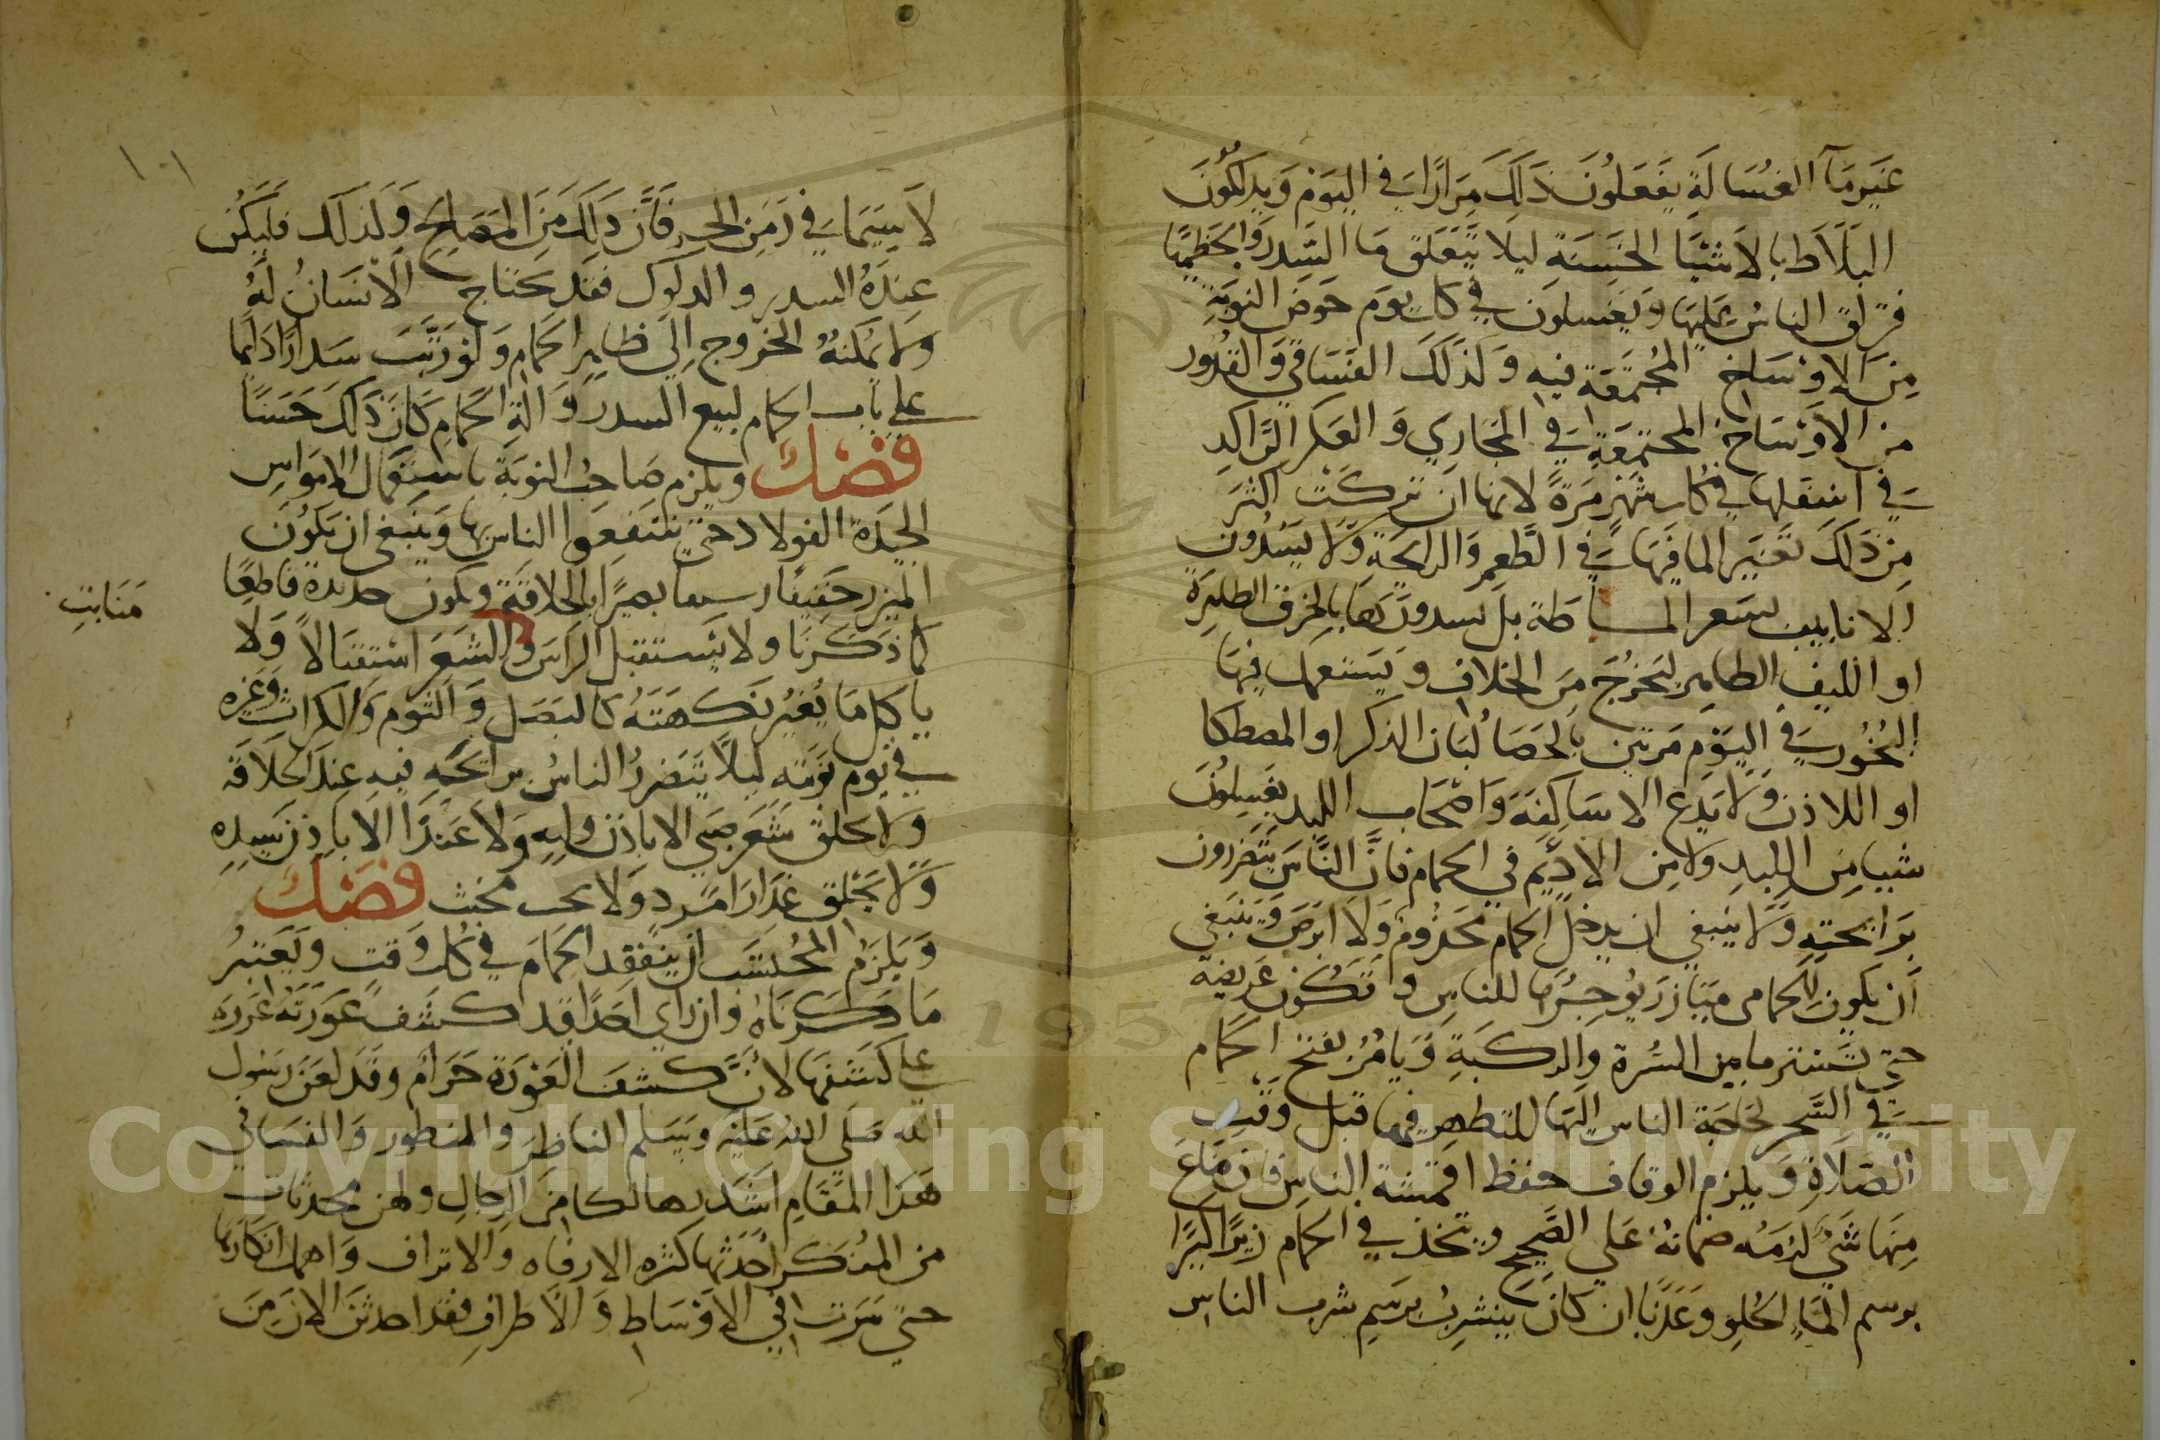 غير ما الغسالة يفعلون ذلك مرارا في اليوم ويدلكون
البلاط بالاشيا الخشنة ليلا يتعلق ما السدر والخطميا
فتزلق الناس عليها ويغسلون في كل يوم حوض النوبة
من الاوساخ المجتمعة فيه وكذلك الفساقي والقدور
من الاوساخ المجتمعة في المجاري والعكر الراكد
في اسفلها في كل شهر مرة لانها ان تركت اكثر
من ذلك تغير الما فيها في الطعم والرايحة ولا يسدون
الانابيب بشعر المشاطة بل يسدونها بالخرق الطاهرة
او الليف الطاهر ليخرج من الخلاف ويستعمل فيها
البخور في اليوم مرتين بالحصا لبان الذكر او المصطكا
او اللاذن ولا يدع الاساكفة واصحاب اللبد يغسلون
شيا من اللبد ولا من الاديم في الحمام فان الناس يتضررون
برايحته ولا ينبغي ان يدخل الحمام مجذوم ولا ابرص وينبغي
ان يكون للحمامي ميازر يوجرها للناس وتكون عريضة
حتي تستر ما بين السرة والركبة ويامر بفتح الحمام
في السحر لحاجة الناس اليها للتطهر فيها قبل وقت
الصلاة ويلزم الوقاف حفظ اقمشة الناس فان ضاع
منها شي لزمه ضمانه علي الصحيح ويتخذ في الحمام زيرا كبيرا
برسم الماء الحلو وعدبا ان كان يتشرب برسم شرب الناس
١٠١
لا سيما في زمن الحر فان ذلك من المصالح وكذلك فليكن
عنده السدر والدلوك فقد يحتاج الانسان له
ولا يمكنه الخروج الي ظاهر الحمام ولو رتب سدارا دايما
علي باب الحمام لبيع السدر والة الحمام كان ذلك حسنا
فصل ويلزم صاحب النوبة باستعمال الامواس
الجيدة الفولاد حتي ينتفعوا الناس بها وينبغي ان يكون
المزين خفيفا رسيما بصيرا بالحلاقة ويكون حديده قاطعا
كما ذكرنا ولا يستقبل الراس والشعر استقبالا ولا
منابت
ياكل ما يغير نكهته كالبصل والثوم والكراث وغيره
في يوم نوبته ليلا يتضرر الناس برايحة فيه عند الحلاقة
ولا يحلق شعر صبي الا باذن وليه ولا عبدا الا باذن سيده
ولا يحلق عذار امرد ولا لحية مخنث فصل
ويلزم المحتسب ان يتفقد الحمام في كل وقت ويعتبر
ما ذكرناه وان راي احدا قد كشف عورته عزره
علي كشفها لان كشف العورة حرام وقد لعن رسول
الله صلي الله عليه وسلم الناظر والمنظور والنساء في
هذا المقام اشد تهالكا من الرجال ولهن محدثات
من المنكر احدثها كثرة الارفاه والاتراف واهمل انكارها
حتي سرت في الاوساط والاطراف فقد احدثن الان من